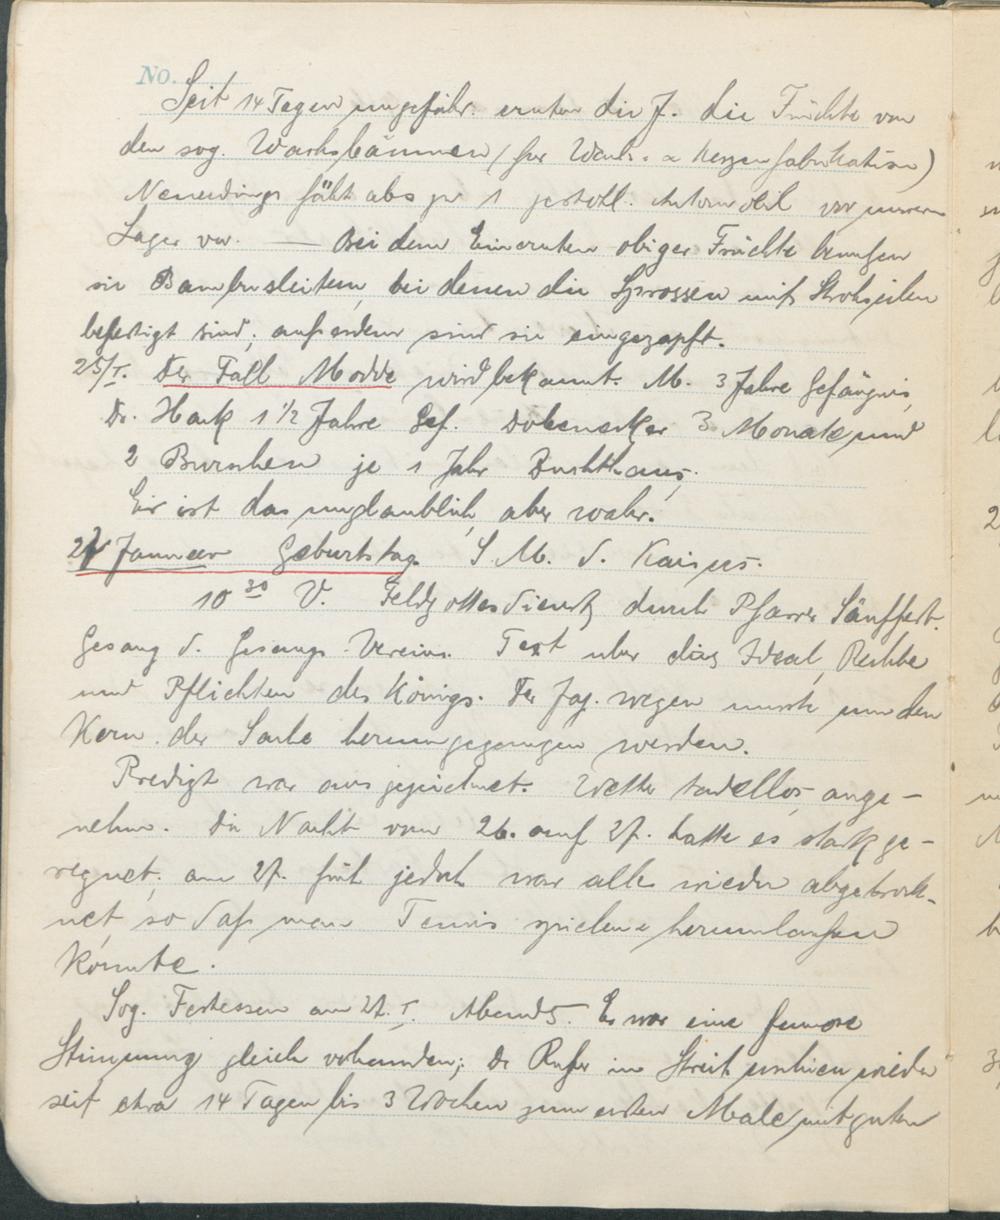 No.
Seit 14 Tagen ungefähr ernten die J. die Früchte von
den sog. Wachsbäumen (für Wachs- u Kerzenfabrikation)
Neuerdings fährt abs per 1 Automobil vor unserem
Lager vor. — Bei dem Einernten obiger Früchte benutzen
sie Bambusleitern, bei denen die Sprossen mit Strohseilen
befestigt sind; außerdem sind sie eingezapft.
25/I. Der Fall Modde wird bekannt. M. 3 Jahre Gefängnis,
Dr. Hack 1 1/2 Jahre Gef. Dobenecker 3 Monate und
2 Burschen je 1 Jahr Zuchthaus.
Es ist das unglaublich, aber wahr.
27 Januar Geburtstag S. M. d. Kaisers.
10 30 V. Feldgottesdienst durch Pfarrer
Gesang d. Gesangs-Vereins. Text über das Ideal, Rechte
und Pflichten des Königs. Der Jap. wegen musste um den
Kern der Sache herumgegangen werden.
Predigt war ausgezeichnet. Wetter tadellos, ange-
nehm. Die Nacht vom 26. auf 27. hatte es stark ge-
regnet; am 27. früh jedoch war alles wieder abgetrock-
net, so daß man Tennis spielen u herumlaufen
konnte.
Sog. Festessen am 27. I. Abends. Es war eine famose
Stimmung gleich vorhanden; der Rufer im Streit erschien wieder
seit etwa 14 Tagen bis 3 Wochen zum ersten Male mit guten